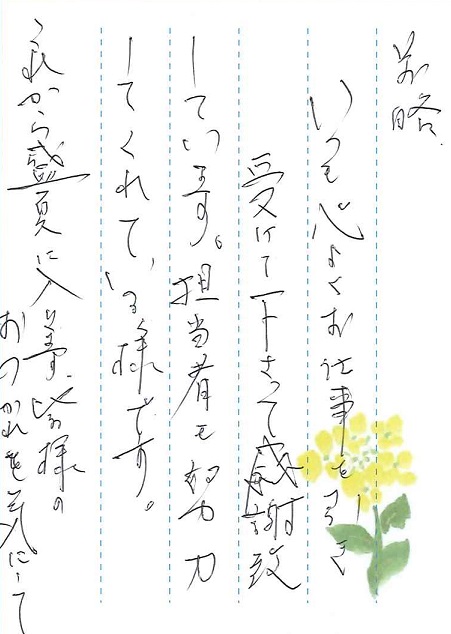 前略
いつも心よくお仕事を引き
受けて下さって感謝致
しています。担当者も努力
してくれている様です。
これから盛夏に入ります。皆様の
おつかれを気にして